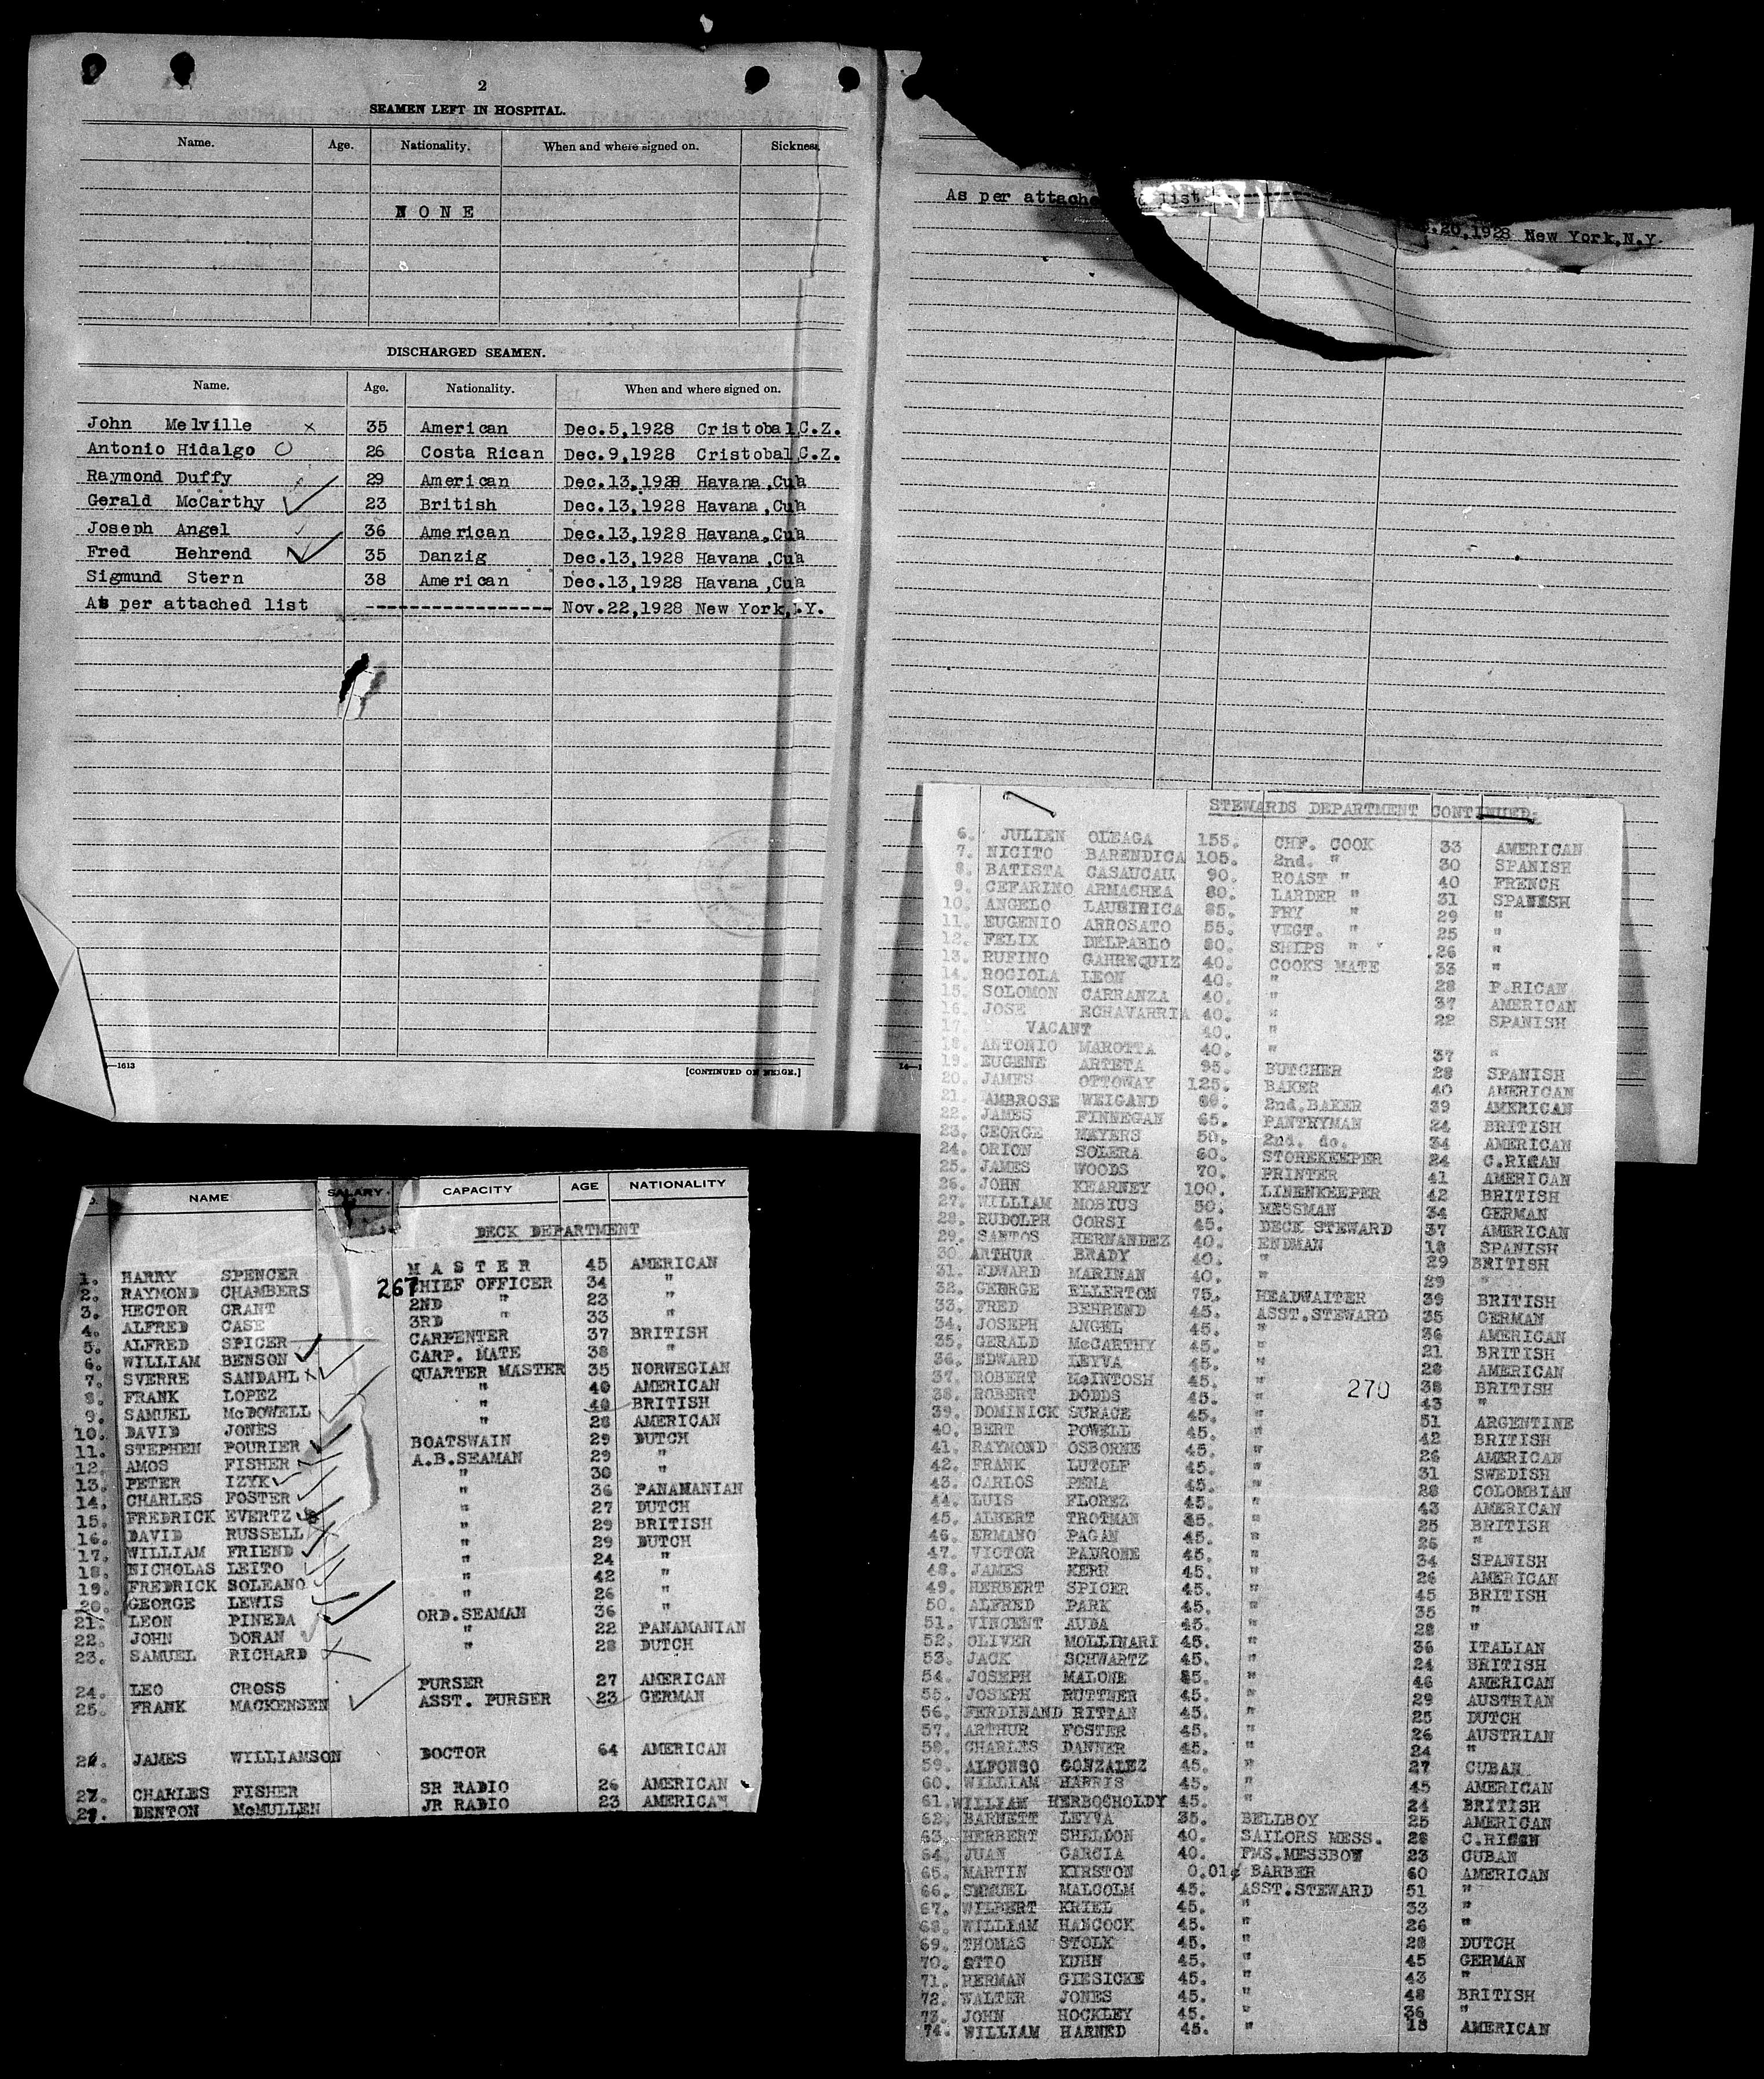 2
SEAMEN LEFT IN HOSPITAL.
Name. Age. Nationality. When and where signed on. Sickness
NONE
DISCHARGED SEAMEN.
Name. Age. Nationality. When and where signed on.
John Melville x 35 American Dec.5,1928 Cristobal C.Z.
Antonio Hidalgo O 26 Costa Rican Dec.9,1928 Cristobal C.Z.
Raymond Duffy 29 American Dec.13,1928 Havana,Cu a
Gerald McCarthy ✓ 23 British Dec.13,1928 Havana,Cu a
Joseph Angel ✓ 36 American Dec.13,1928 Havana,Cu a
Fred Behrend ✓ 35 Danzig Dec.13,1928 Havana,Cu a
Sigmund Stern 38 American Dec.13,1928 Havana,Cu a
As per attached list ---------------- Nov.22,1928 New York, .Y.
—1613 [CONTINUED ON
As per attached list
.20,1928 New York,N.Y.
14—1
NAME SALARY. CAPACITY AGE NATIONALITY
DECK DEPARTMENT
1. HARRY SPENCER MASTER 45 AMERICAN
2. RAYMOND CHAMBERS 267 CHIEF OFFICER 34 "
3. HECTOR GRANT 2ND " 23 "
4. ALFRED CASE 3RD " 33 "
5. ALFRED SPICER CARPENTER 37 BRITISH
6. WILLIAM BENSON CARP. MATE 38 "
7. SVERRE SANDAHL QUARTER MASTER 35 NORWEGIAN
8. FRANK LOPEZ " 40 AMERICAN
9. SAMUEL McDOWELL " 40 BRITISH
10. DAVID JONES " 28 AMERICAN
11. STEPHEN POURIER BOATSWAIN 29 DUTCH
12. AMOS FISHER A.B.SEAMAN 29 "
13. PETER IZYK " 30 "
14. CHARLES FOSTER " 36 PANAMANIAN
15. FREDRICK EVERTZ " 27 DUTCH
16. DAVID RUSSELL " 29 BRITISH
17. WILLIAM FRIEND " 29 DUTCH
18. NICHOLAS LEITO " 24 "
19. FREDRICK SOLEANO " 42 "
20. GEORGE LEWIS " 26 "
21. LEON PINEDA ORD.SEAMAN 36 "
22. JOHN DORAN " 22 PANAMANIAN
23. SAMUEL RICHARD " 28 DUTCH
24. LEO CROSS PURSER 27 AMERICAN
25. FRANK MACKENSEN ASST. PURSER 23 GERMAN
26. JAMES WILLIAMSON DOCTOR 64 AMERICAN
27. CHARLES FISHER SR RADIO 26 AMERICAN
DENTON McMULLEN JR RADIO 23 AMERICAN
STEWARDS DEPARTMENT CONTINUED:
6. JULIEN OLEAGA 155. CHF. COOK 33 AMERICAN
7. NICITO BARENDICA 105. 2nd. " 30 SPANISH
8. BATISTA CASAUCAU 90. ROAST " 40 FRENCH
9. CEFARINO ARMACHEA 80. LARDER " 31 SPANISH
10. ANGELO LAUBIRICA 85. FRY " 29 "
11. EUGENIO ARROSATO 55. VEGT. " 25 "
12. FELIX DELPABLO 80. SHIPS " 26 "
13. RUFINO GAHREQUIZ 40. COOKS MATE 33 "
14. ROGIOLA LEON 40. " 28 P.RICAN
15. SOLOMON CARRANZA 40. " 37 AMERICAN
16. JOSE ECHAVARRIA 40. " 22 SPANISH
17. VACANT 40. "
18. ANTONIO MAROTTA 40. " 37 "
19. EUGENE ARTETA 95. BUTCHER 28 SPANISH
20. JAMES OTTOWAY 125. BAKER 40 AMERICAN
21. AMBROSE WEIGAND 80. 2nd.BAKER 39 AMERICAN
22. JAMES FINNEGAN 65. PANTRYMAN 24 BRITISH
23. GEORGE MEYERS 50. 2nd. do. 34 AMERICAN
24. ORION SOLERA 60. STOREKEEPER 24 C.RICAN
25. JAMES WOODS 70. PRINTER 41 AMERICAN
26. JOHN KEARNEY 100. LINENKEEPER 42 BRITISH
27. WILLIAM MOBIUS 50. MESSMAN 34 GERMAN
28. RUDOLPH CORSI 45. DECK STEWARD 37 AMERICAN
29. SANTOS HERNANDEZ 40. ENDMAN 18 SPANISH
30. ARTHUR BRADY 40. " 29 BRITISH
31. EDWARD MARINAN 40. " 29 "
32. GEORGE ELLERTON 75. HEADWAITER 39 BRITISH
33. FRED BEHREND 45. ASST.STEWARD 35 GERMAN
34. JOSEPH ANGEL 45. " 36 AMERICAN
35. GERALD McCARTHY 45. " 21 BRITISH
36. EDWARD LEYVA 45. " 28 AMERICAN
37. ROBERT McINTOSH 45. " 270 38 BRITISH
38. ROBERT DODDS 45. " 43 "
39. DOMINICK SURACE 45. " 51 ARGENTINE
40. BERT POWELL 45. " 42 BRITISH
41. RAYMOND OSBORNE 45. " 26 AMERICAN
42. FRANK LUTOLF 45. " 31 SWEDISH
43. CARLOS PENA 45. " 28 COLOMBIAN
44. LUIS FLOREZ 45. " 43 AMERICAN
45. ALBERT TROTMAN 85. " 25 BRITISH
46. ERMANO PAGAN 45. " 26 "
47. VICTOR PADRONE 45. " 34 SPANISH
48. JAMES KERR 45. " 26 AMERICAN
49. HERBERT SPICER 45. " 45 BRITISH
50. ALFRED PARK 45. " 35 "
51. VINCENT AUDA 45. " 28 "
52. OLIVER MOLLINARI 45. " 36 ITALIAN
53. JACK SCHWARTZ 45. " 24 BRITISH
54. JOSEPH MALONE 85. " 46 AMERICAN
55. JOSEPH RUTTNER 45. " 29 AUSTRIAN
56. FERDINAND RITTAN 45. " 25 DUTCH
57. ARTHUR FOSTER 45. " 26 AUSTRIAN
58. CHARLES DANNER 45. " 24 "
59. ALFONSO GONZALEZ 45. " 27 CUBAN
60. WILLIAM HARRIS 45. " 45 AMERICAN
61. WILLIAM HERBOCHOLDY 45. " 24 BRITISH
62. BARNETT LEYVA 35. BELLBOY 25 AMERICAN
63. HERBERT SHELDON 40. SAILORS MESS. 28 C.RICAN
64. JUAN GARCIA 40. FMS.MESSBOW 23 CUBAN
65. MARTIN KIRSTON 0.01¢ BARBER 60 AMERICAN
66. SAMUEL MALCOLM 45. ASST.STEWARD 51 "
67. WILBERT KRIEL 45. " 33 "
68. WILLIAM HANCOCK 45. " 26 "
69. THOMAS STOLK 45. " 28 DUTCH
70. OTTO KUHN 45. " 45 GERMAN
71. HERMAN GIESICKE 45. " 43 "
72. WALTER JONES 45. " 48 BRITISH
73. JOHN HOCKLEY 45. " 36 "
74. WILLIAM HARNED 45. " 18 AMERICAN